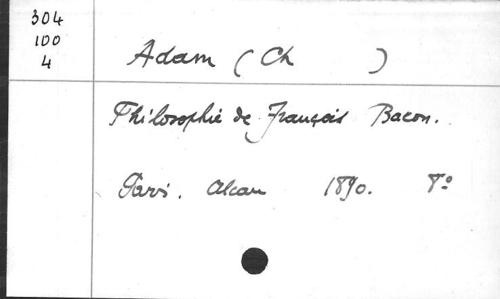 304
100
4
Adam (Ch )
Philosophie de François Bacon.
Paris. Alcan 1890. 8º